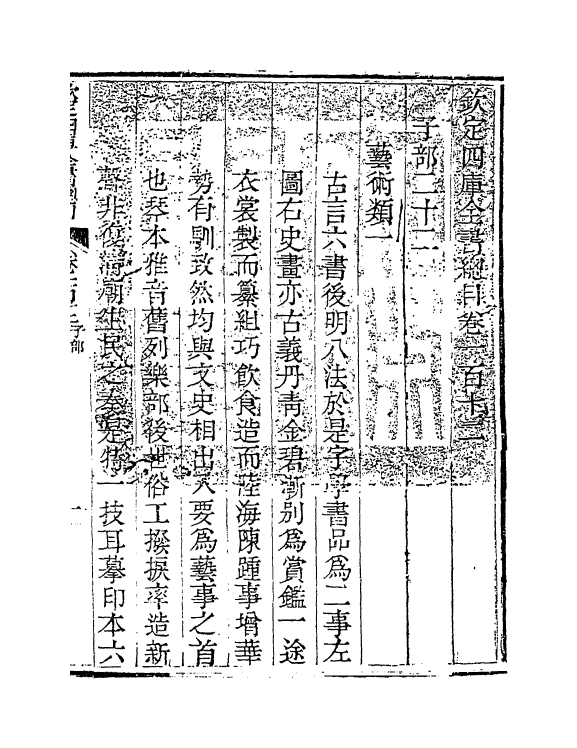 欽定四庫全書總目卷一百十二
子部二十二
藝術類一
古言六書後明八法於是字學書品為二事左
圖右史畫亦古義丹青金碧漸別為賞鑑一途
衣裳製而纂組巧飲食造而陸海陳踵事增華
勢有馴致然均與文史相出入要為藝事之首
也琴本雅音舊列樂部後世俗工撥捩率造新
聲非復清廟生民之奏是特一技耳摹印本六
子部
一